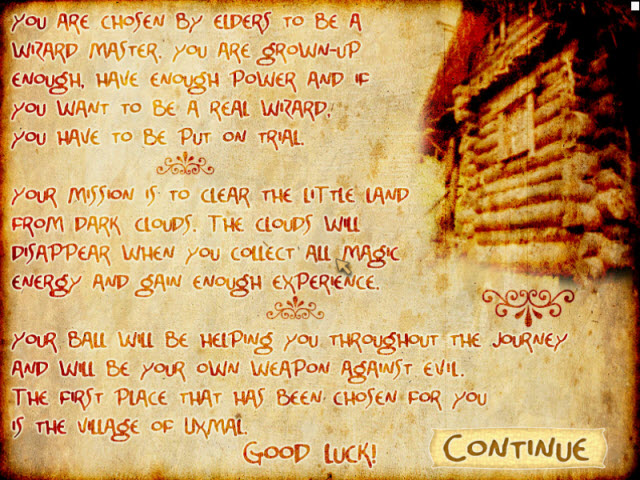 You are chosen by elders to be a
wizard master. You are grown-up
enough, have enough power and if
you want to be a real wizard,
you have to be put on trial.
Your mission is to clear the little land
from dark clouds. The clouds will
disappear when you collect all magic
energy and gain enough experience.
Your ball will be helping you throughout the journey
and will be your own weapon against evil.
The first place that has been chosen for you
is the village of Uxmal.
Good luck!
Continue